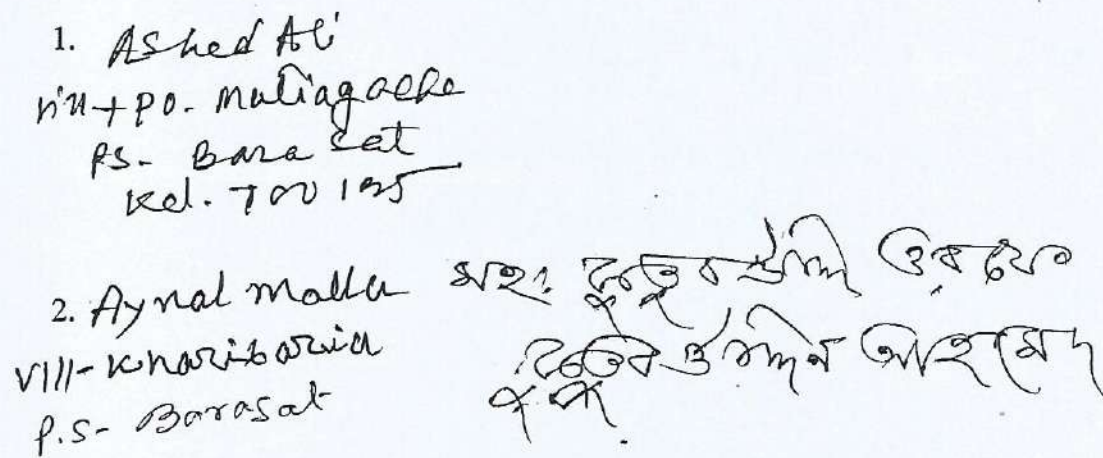 1. Ashed Ali
Vill + PO. Maliagacha
PS- Barasat
Kol. 700 125
2. Aynal Molla
Vill- Kharibaria
P.S- Barasat
মহঃ কুতুবউদ্দীন ওরফে
কুতুবউদ্দিন আহমেদ